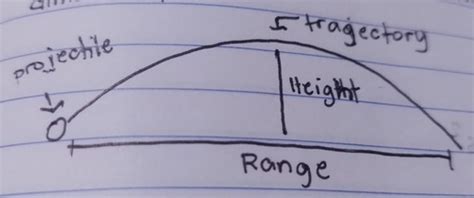 trajectory
projectile
Height
Range